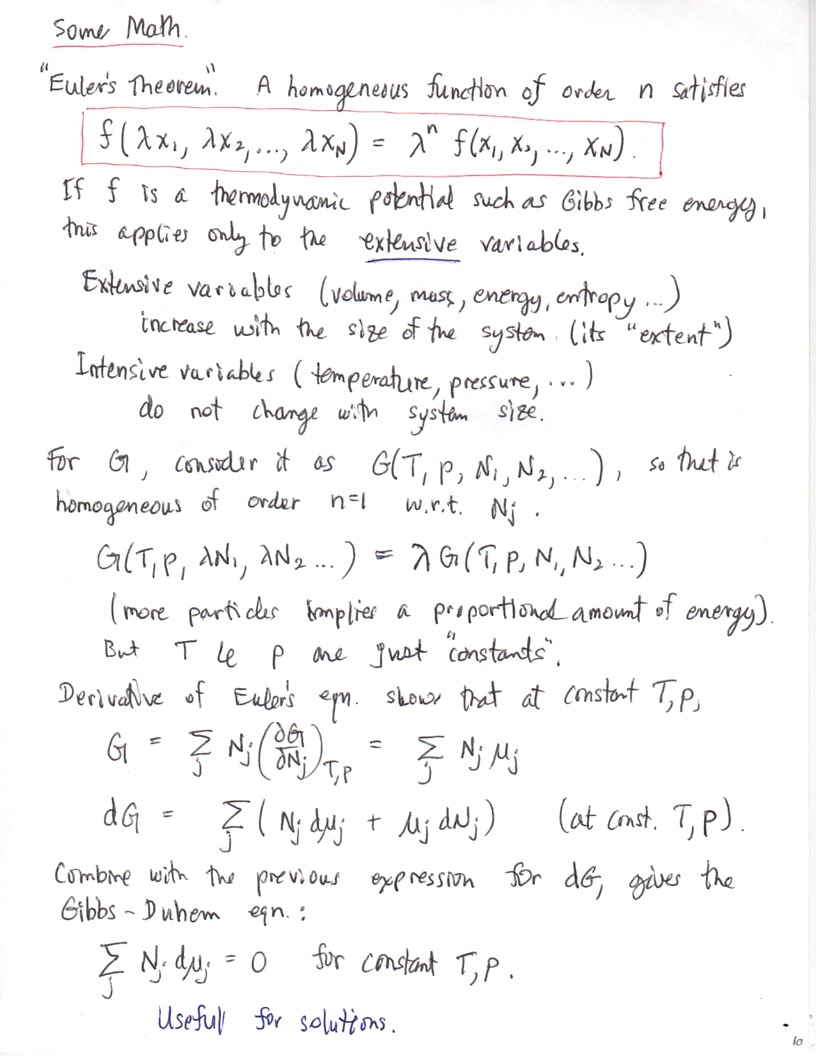 Some Math.
"Euler's Theorem". A homogeneous function of order n satisfies
f(λx₁, λx₂, ..., λx_N) = λⁿ f(x₁, x₂, ..., x_N).
If f is a thermodynamic potential such as Gibbs free energy,
this applies only to the extensive variables.
Extensive variables (volume, mass, energy, entropy ...)
increase with the size of the system. (its "extent")
Intensive variables (temperature, pressure, ...)
do not change with system size.
For G, consider it as G(T, p, N₁, N₂, ...), so that is
homogeneous of order n=1 w.r.t. Nj.
G(T, p, λN₁, λN₂ ...) = λ G(T, p, N₁, N₂ ...)
(more particles implies a proportional amount of energy).
But T & p are just "constants".
Derivative of Euler's eqn. shows that at constant T, p,
G = ∑_j Nj (∂G/∂Nj)_T,p = ∑_j Nj μj
dG = ∑_j (Nj dμj + μj dNj) (at const. T, p).
Combine with the previous expression for dG, gives the
Gibbs-Duhem eqn.:
∑_j Nj dμj = 0 for constant T, p.
Usefull for solutions.
10